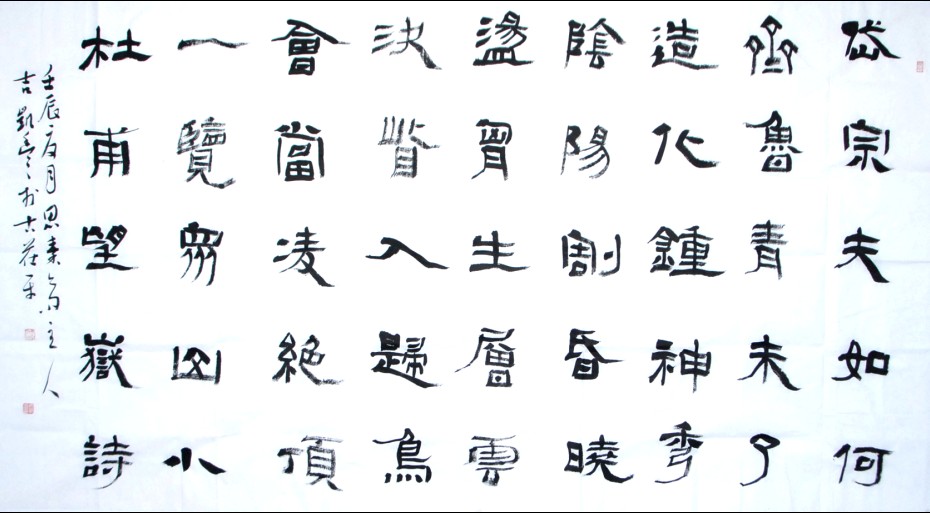 岱宗夫如何
齊魯青未了
造化鍾神秀
陰陽割昏曉
盪胷生層雲
決眥入歸鳥
會當凌絕頂
一覽眾山小
杜甫望嶽詩
壬辰月思主人
吉於古莊平